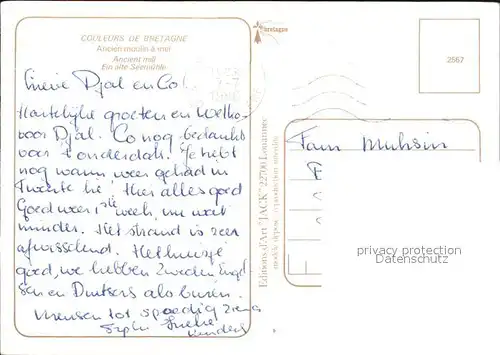 COULEURS DE BRETAGNE
Ancien moulin à mer
Ancient mill
Ein alte Seemühle
bretagne
2567
Lieve Djal en Co
Hartelijke groeten en
voor Djal. Co nog bedankt
voor t onderdak. Je hebt
nog warm weer gehad in
Twente hè! Hier alles goed
Goed weer 1ste week, nu wat
minder. Het strand is zeer
afwisselend. Het huisje
goed, we hebben Zweden Engel
sen en Duitsers als buren.
Mensen tot spoedig ziens
kinders
Editions d'Art "JACK" 22700 Louannec
modèle déposé - reproduction interdite
Fam Muhsin
privacy protection
Datenschutz